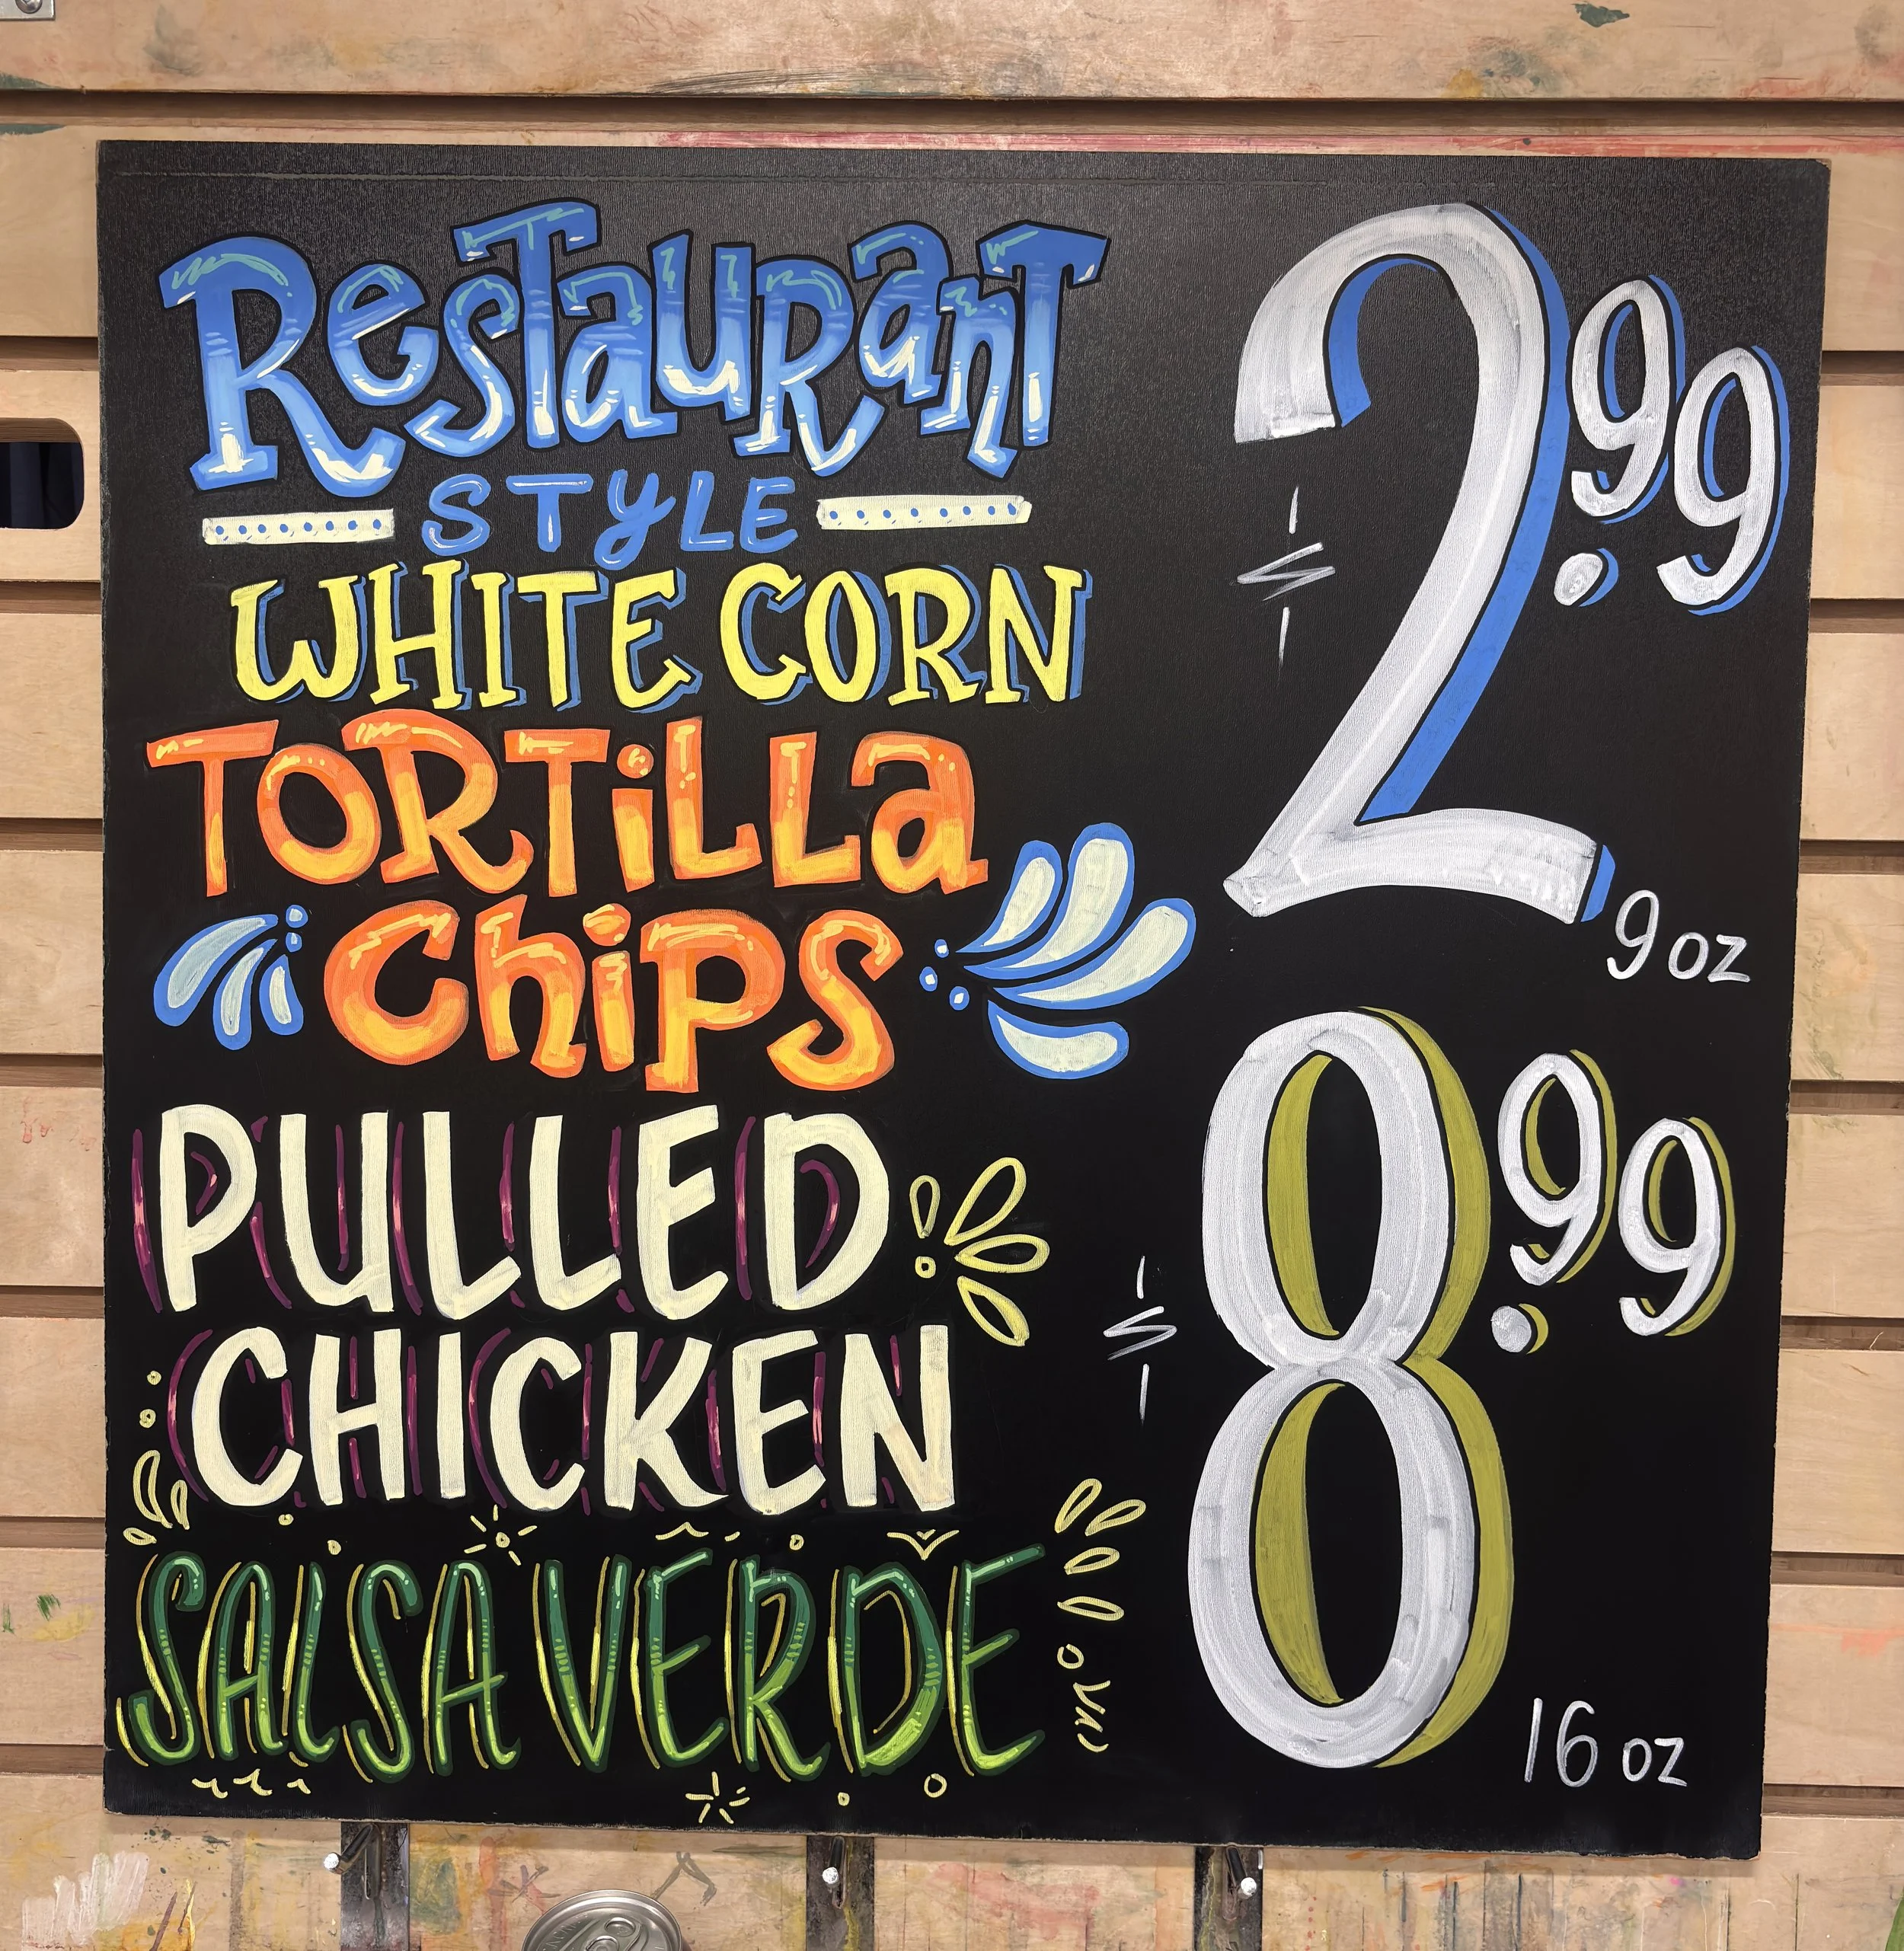 Restaurant
STYLE
WHITE CORN
TORTilla
Chips
$2.99
9 oz
PULLED
CHICKEN
SALSA VERDE
$8.99
16 oz